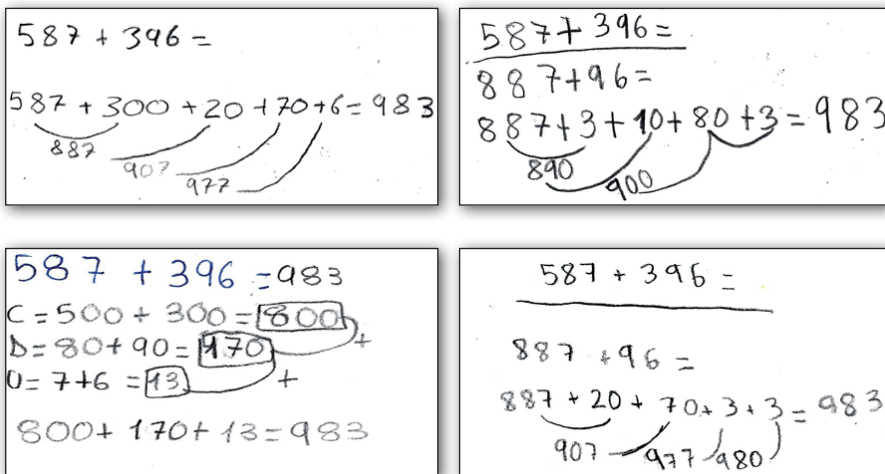 587 + 396 =
587 + 300 + 20 + 70 + 6 = 983
887
907
977
587 + 396 =
887 + 96 =
887 + 3 + 10 + 80 + 3 = 983
890
900
587 + 396 = 983
C = 500 + 300 = 800
D = 80 + 90 = 170 +
U = 7 + 6 = 13 +
800 + 170 + 13 = 983
587 + 396 =
887 + 96 =
887 + 20 + 70 + 3 + 3 = 983
907 977 980